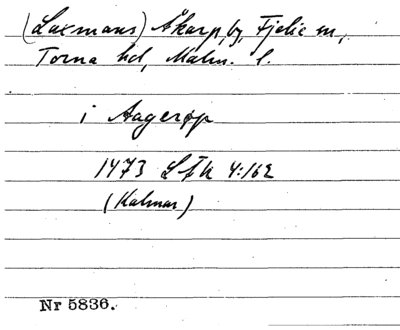 (Laxmans) Åkarp, by, Fjelie sn,
Torna hd, Malm. l.
i Aagerøp
1473 LÄk 4:162
(Kalmar)
Nr 5836.